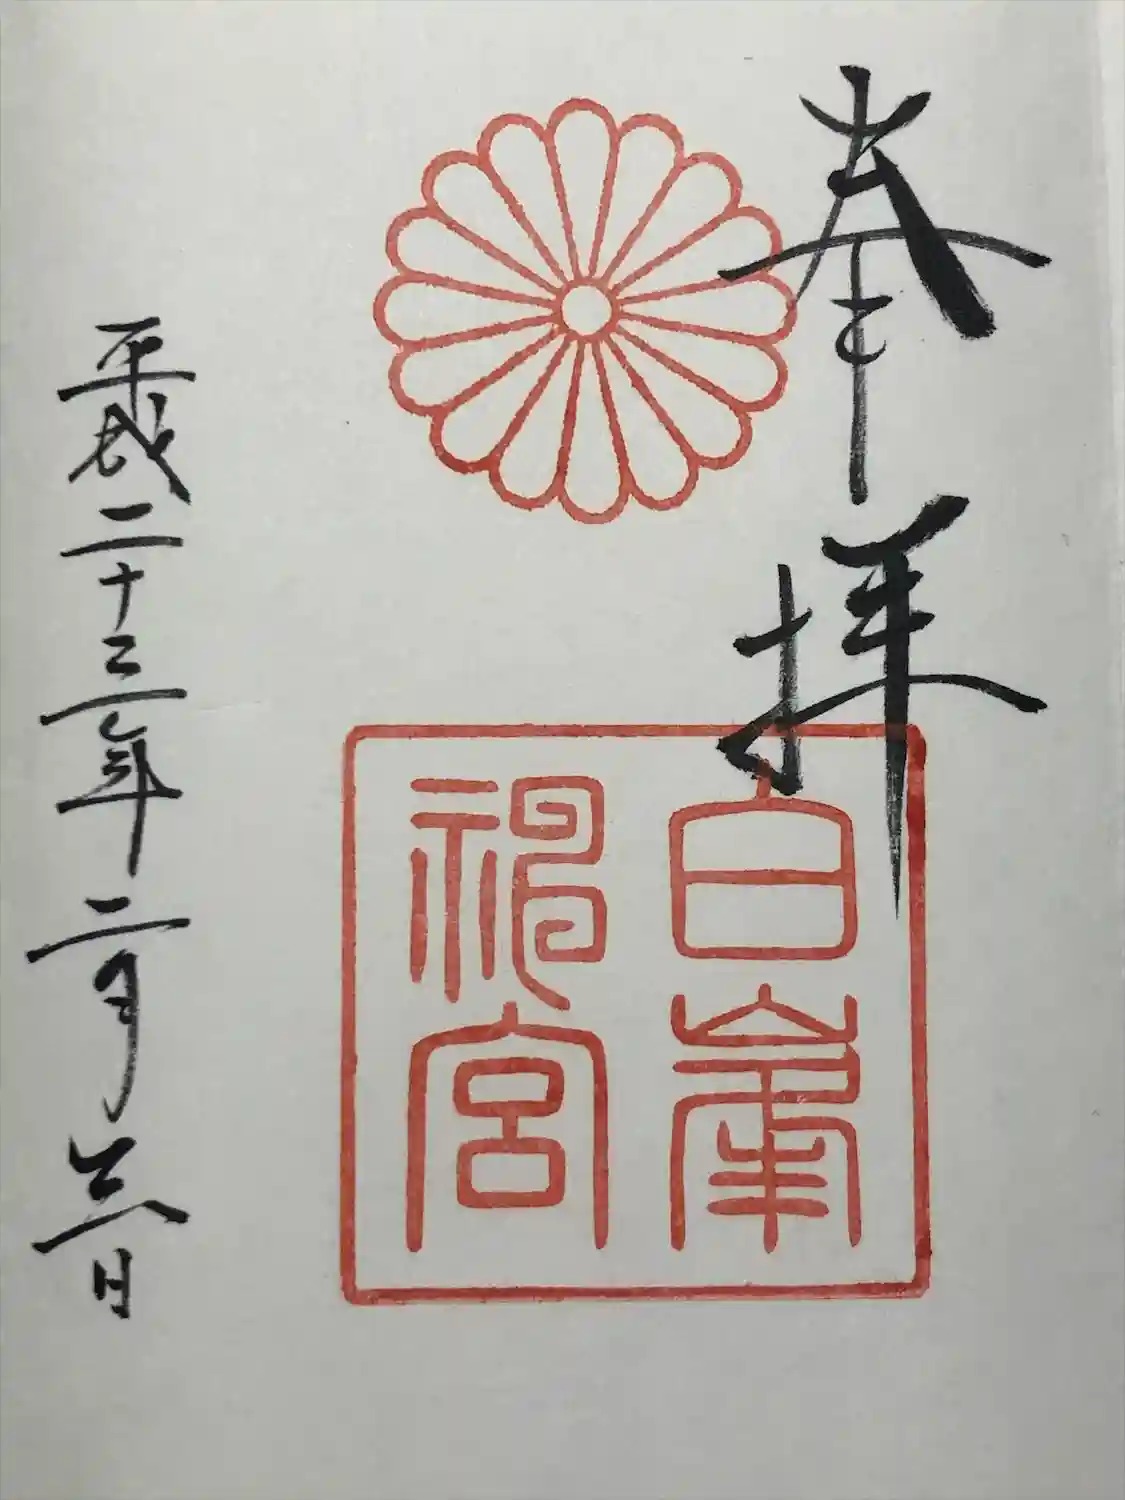 奉拝
白峯
神宮
平成二十三年二月三日